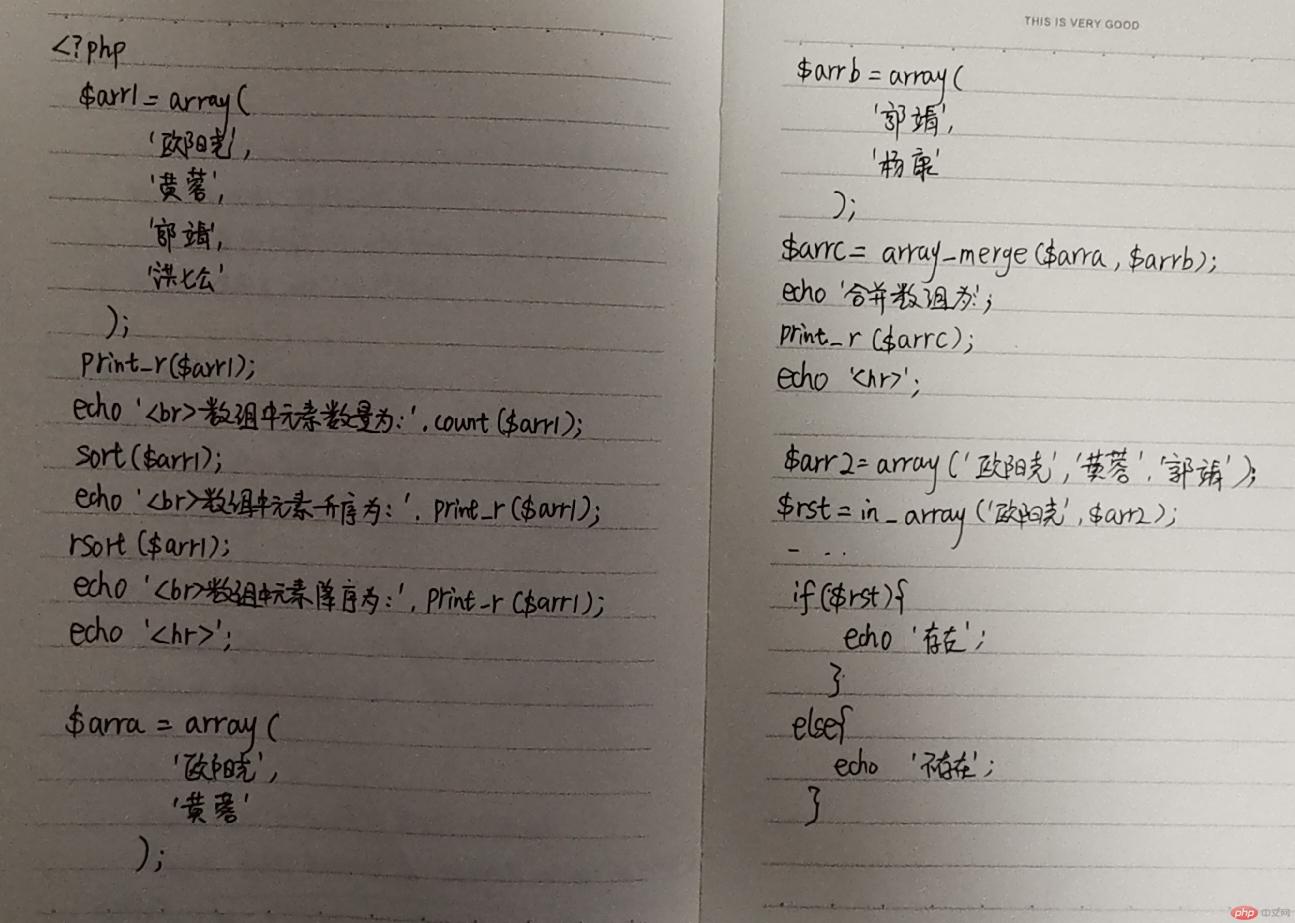 <?php
$arr1 = array(
'欧阳克',
'黄蓉',
'郭靖',
'洪七公'
);
print_r($arr1);
echo '<br>数组中元素数量为：'.count($arr1);
sort($arr1);
echo '<br>数组中元素升序为：'.print_r($arr1);
rsort($arr1);
echo '<br>数组中元素降序为：'.print_r($arr1);
echo '<hr>';
$arra = array(
'欧阳克',
'黄蓉'
);
THIS IS VERY GOOD
$arrb = array(
'郭靖',
'杨康'
);
$arrc = array_merge($arra, $arrb);
echo '合并数组为:';
print_r ($arrc);
echo '<hr>';
$arr2 = array('欧阳克','黄蓉','郭靖');
$rst = in_array('欧阳克', $arr2);
- ...
if($rst){
echo '存在';
}
else{
echo '不存在';
}
php 中文网